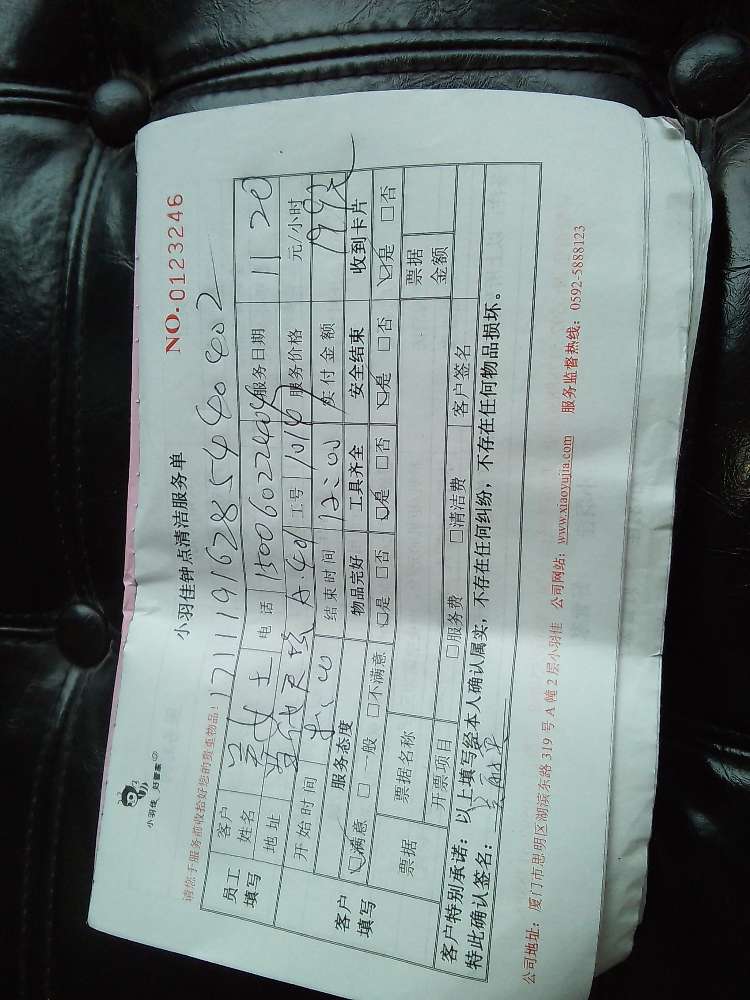 小羽佳 好管家
小羽佳钟点清洁服务单
NO. 0123246
请您于服务前收拾好您的贵重物品！
17111916285440402
员工填写 客户姓名 女士 电话 15006022404 服务日期 11 20
地址 A-401 工号 1014 服务价格 元/小时
开始时间 结束时间 12:00 实付金额
客户填写 服务态度 物品完好 工具齐全 安全结束 收到卡片
☑满意 □一般 □不满意 ☑是 □否 ☑是 □否 ☑是 □否 ☑是 □否
票据 票据名称 票据金额
开票项目 □服务费 □清洁费 客户签名
客户特别承诺：以上填写经本人确认属实，不存在任何纠纷，不存在任何物品损坏。
特此确认签名：
公司地址：厦门市思明区湖滨东路 319 号 A 幢 2 层小羽佳 公司网站：www.xiaoyujia.com 服务监督热线：0592-5888123